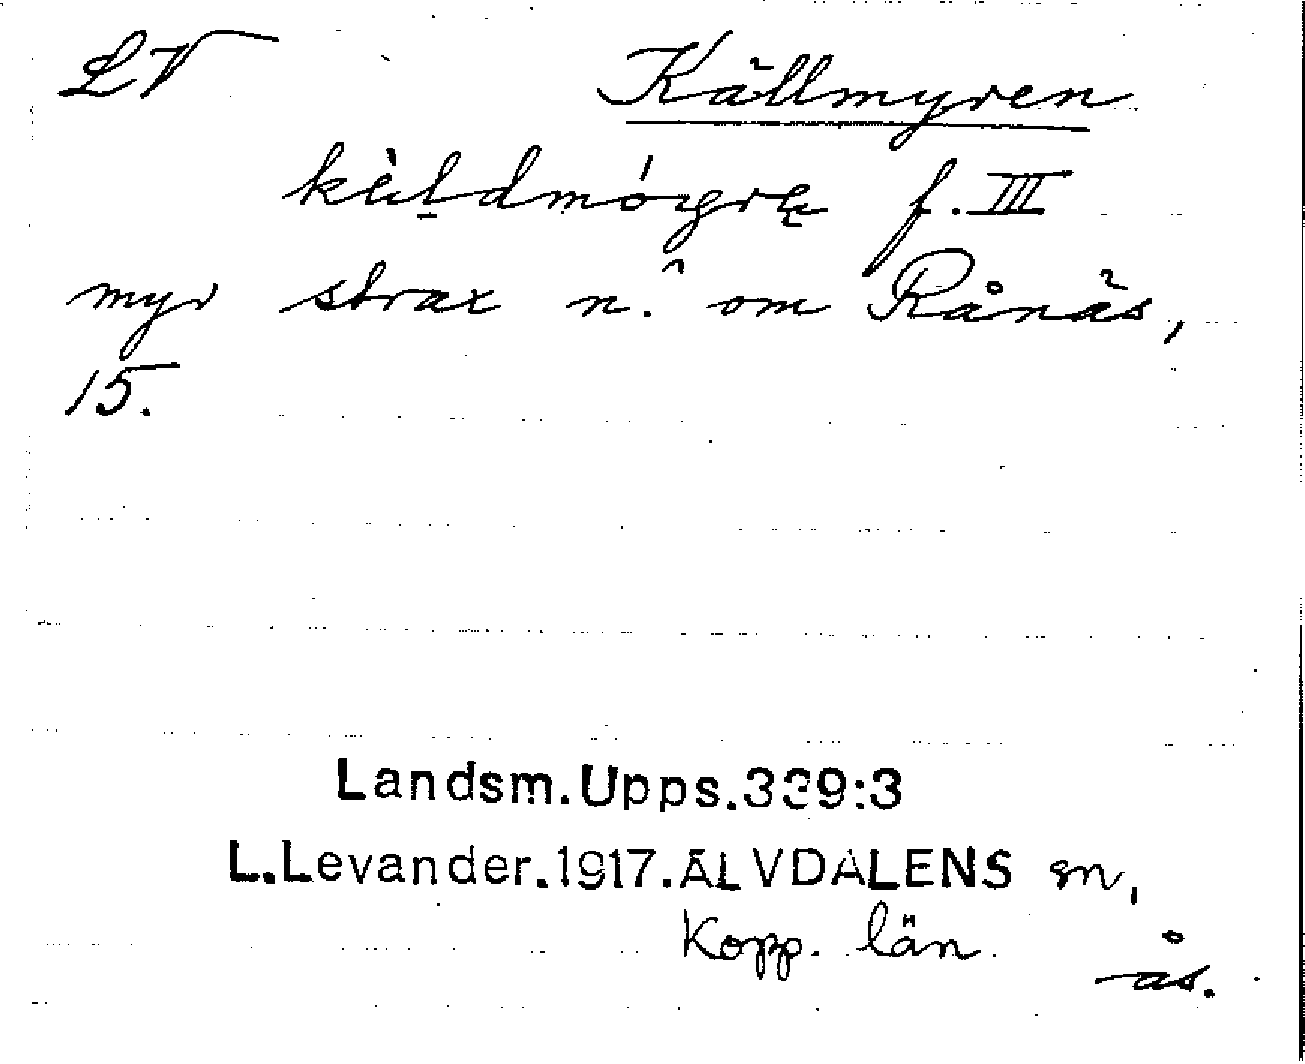 LV Källmyren
kèldmóyrę f. III
myr strax n. om Rånäs,
15.
Landsm. Upps. 339:3
L. Levander. 1917. ÄLVDALENS sn,
Kopp. län.
ås.